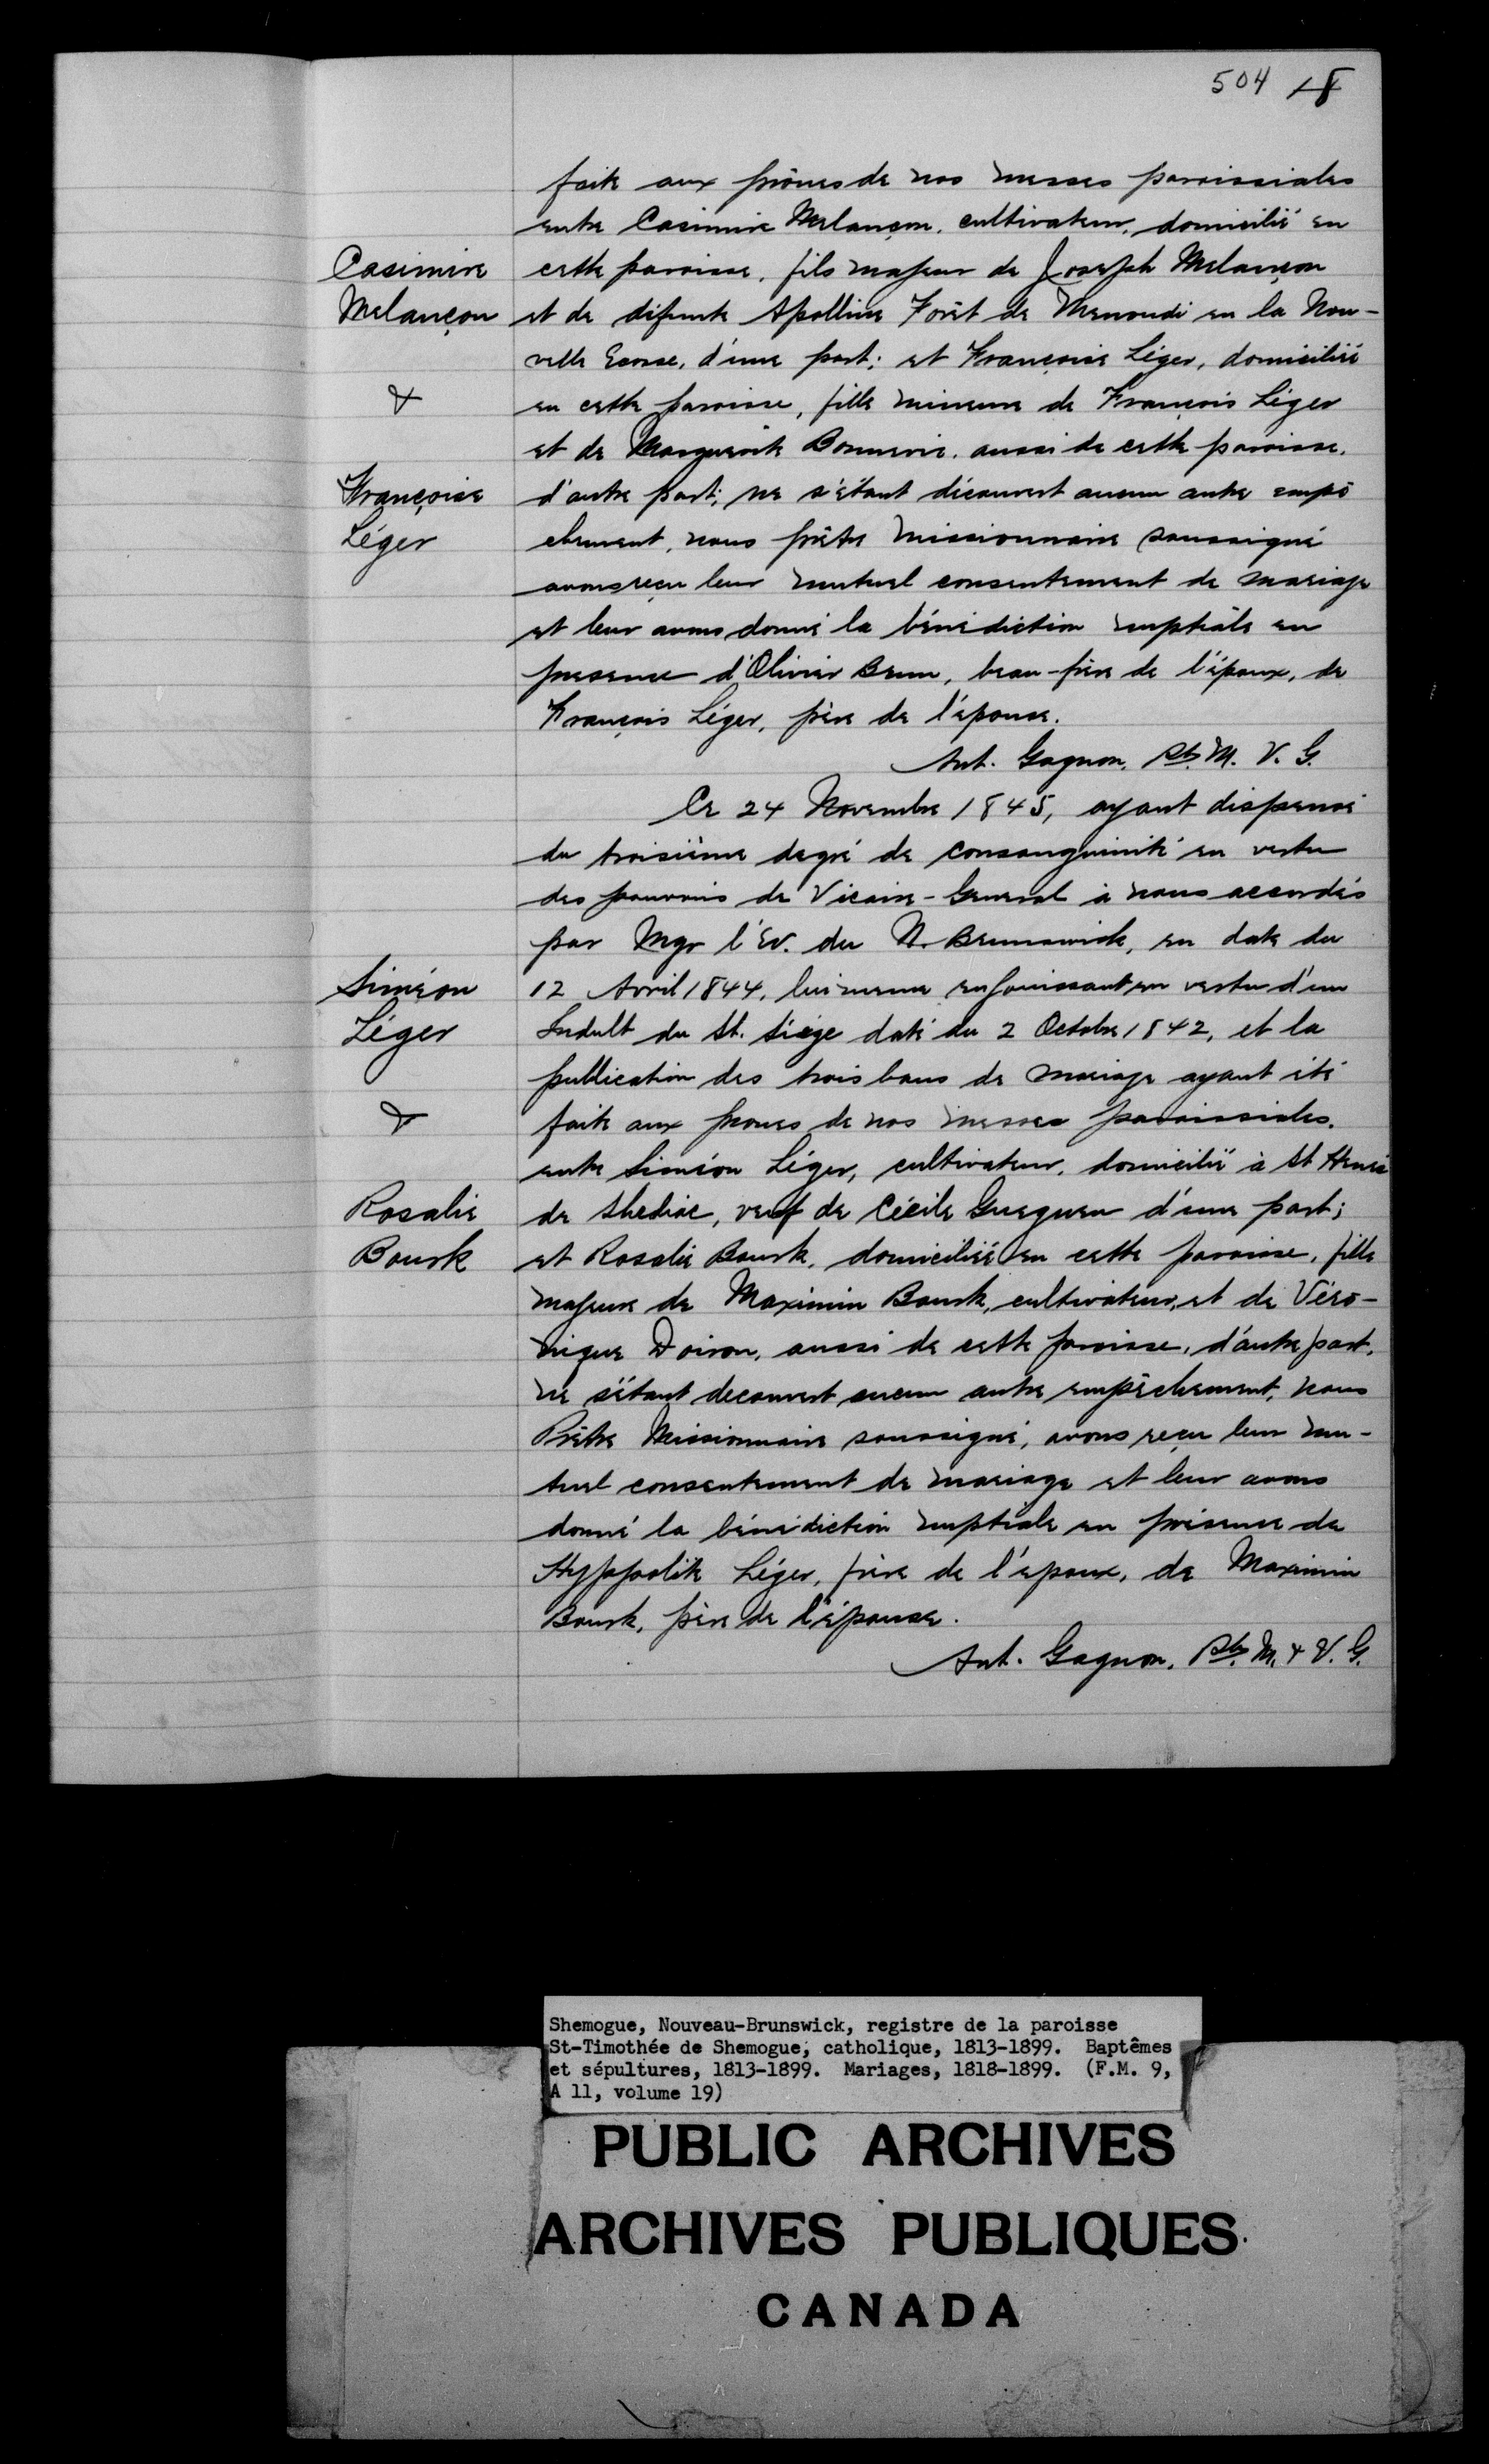 504 18
faite aux prônes de nos messes paroissiales
entre Casimire Melançon, cultivateur, domicilié en
Casimire
cette paroisse, fils majeur de Joseph Melançon
Melançon
et de défunte Apolline Forêt de Menoudi en la Nou-
velle Ecosse, d'une part; et Françoise Léger, domiciliée
&
en cette paroisse, fille mineure de François Léger
et de Marguerite Bonnevie, aussi de cette paroisse,
Françoise
d'autre part; ne s'étant découvert aucun autre empê
Léger
chement, nous prêtre Missionnaire soussigné
avons reçu leur mutuel consentement de mariage
et leur avons donné la bénédiction nuptiale en
presence d'Olivier Brun, beau-frère de l'époux, de
François Léger, père de l'épouse.
Ant. Gagnon, Ptr. M. V. G.
Ce 24 Novembre 1845, ayant dispensé
du troisième degré de consanguinité en vertu
des pouvoirs de Vicaire-General à nous accordés
par Mgr l'Ev. du N. Brunswick, en date du
Siméon
12 Avril 1844, lui meme en jouissant en vertu d'un
Léger
Indult du St. Siège daté du 2 Octobre 1842, et la
publication des trois bans de mariage ayant été
&
faite aux prones de nos messes paroissiales,
entre Siméon Léger, cultivateur, domicilié à St Henri
Rosalie
de Shediac, veuf de Cécile Gueguen d'une part;
Bourk
et Rosalie Bourk, domiciliée en cette paroisse, fille
majeure de Maximin Bourk, cultivateur, et de Véro-
nique Doiron, aussi de cette paroisse, d'autre part,
ne s'étant decouvert aucun autre empêchement, nous
Prêtre Missionnaire soussigné, avons reçu leur mu-
tuel consentement de mariage et leur avons
donné la bénédiction nuptiale en présence de
Hyppolite Léger, frère de l'époux, de Maximin
Bourk, père de l'épouse.
Ant. Gagnon, Ptr. M. & V. G.
Shemogue, Nouveau-Brunswick, registre de la paroisse
St-Timothée de Shemogue, catholique, 1813-1899. Baptêmes
et sépultures, 1813-1899. Mariages, 1818-1899. (F.M. 9,
A 11, volume 19)
PUBLIC ARCHIVES
ARCHIVES PUBLIQUES
CANADA